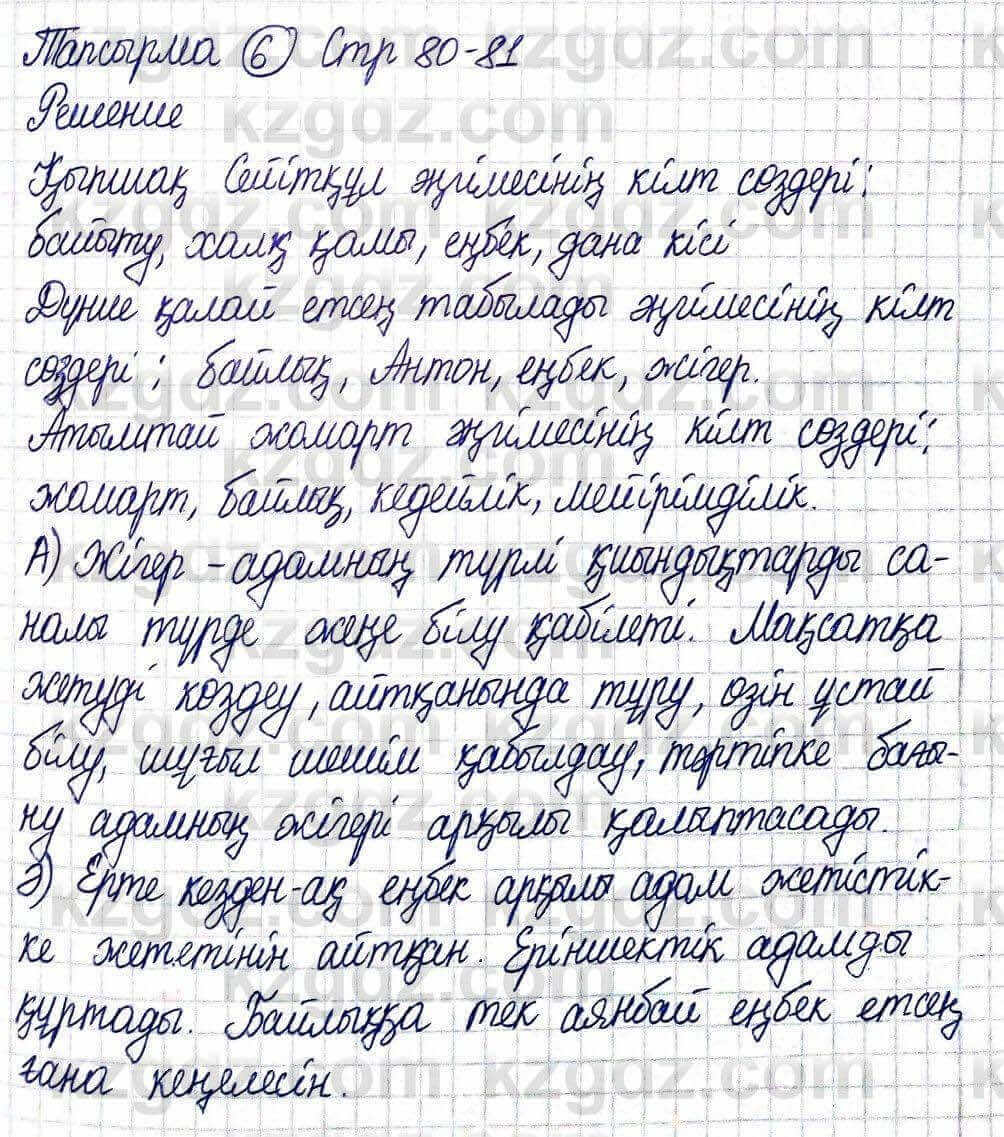 Тапсырма 6 Стр 80-81
Решение
Қыпшақ Сейітқұл әңгімесінің кілт сөздері:
байыту, халқ қамы, еңбек, дана кісі
Дүние қалай етсең табылады әңгімесінің кілт
сөздері: байлық, Антон, еңбек, жігер.
Атымтай жомарт әңгімесінің кілт сөздері:
жомарт, байлық, кедейлік, мейірімділік.
А) Жігер - адамның түрлі қиындықтарды са-
налы түрде жеңе білу қабілеті. Мақсатқа
жетуді көздеу, айтқанында тұру, өзін ұстай
білу, шұғыл шешім қабылдау, тәртіпке бағы-
ну адамның жігері арқылы қалыптасады.
Ә) Ерте кезден-ақ еңбек арқылы адам жетістік-
ке жететінін айтқан. Еріншектік адамды
құртады. Байлыққа тек аянбай еңбек етсең
ғана кенелесін.
kzgdz.com